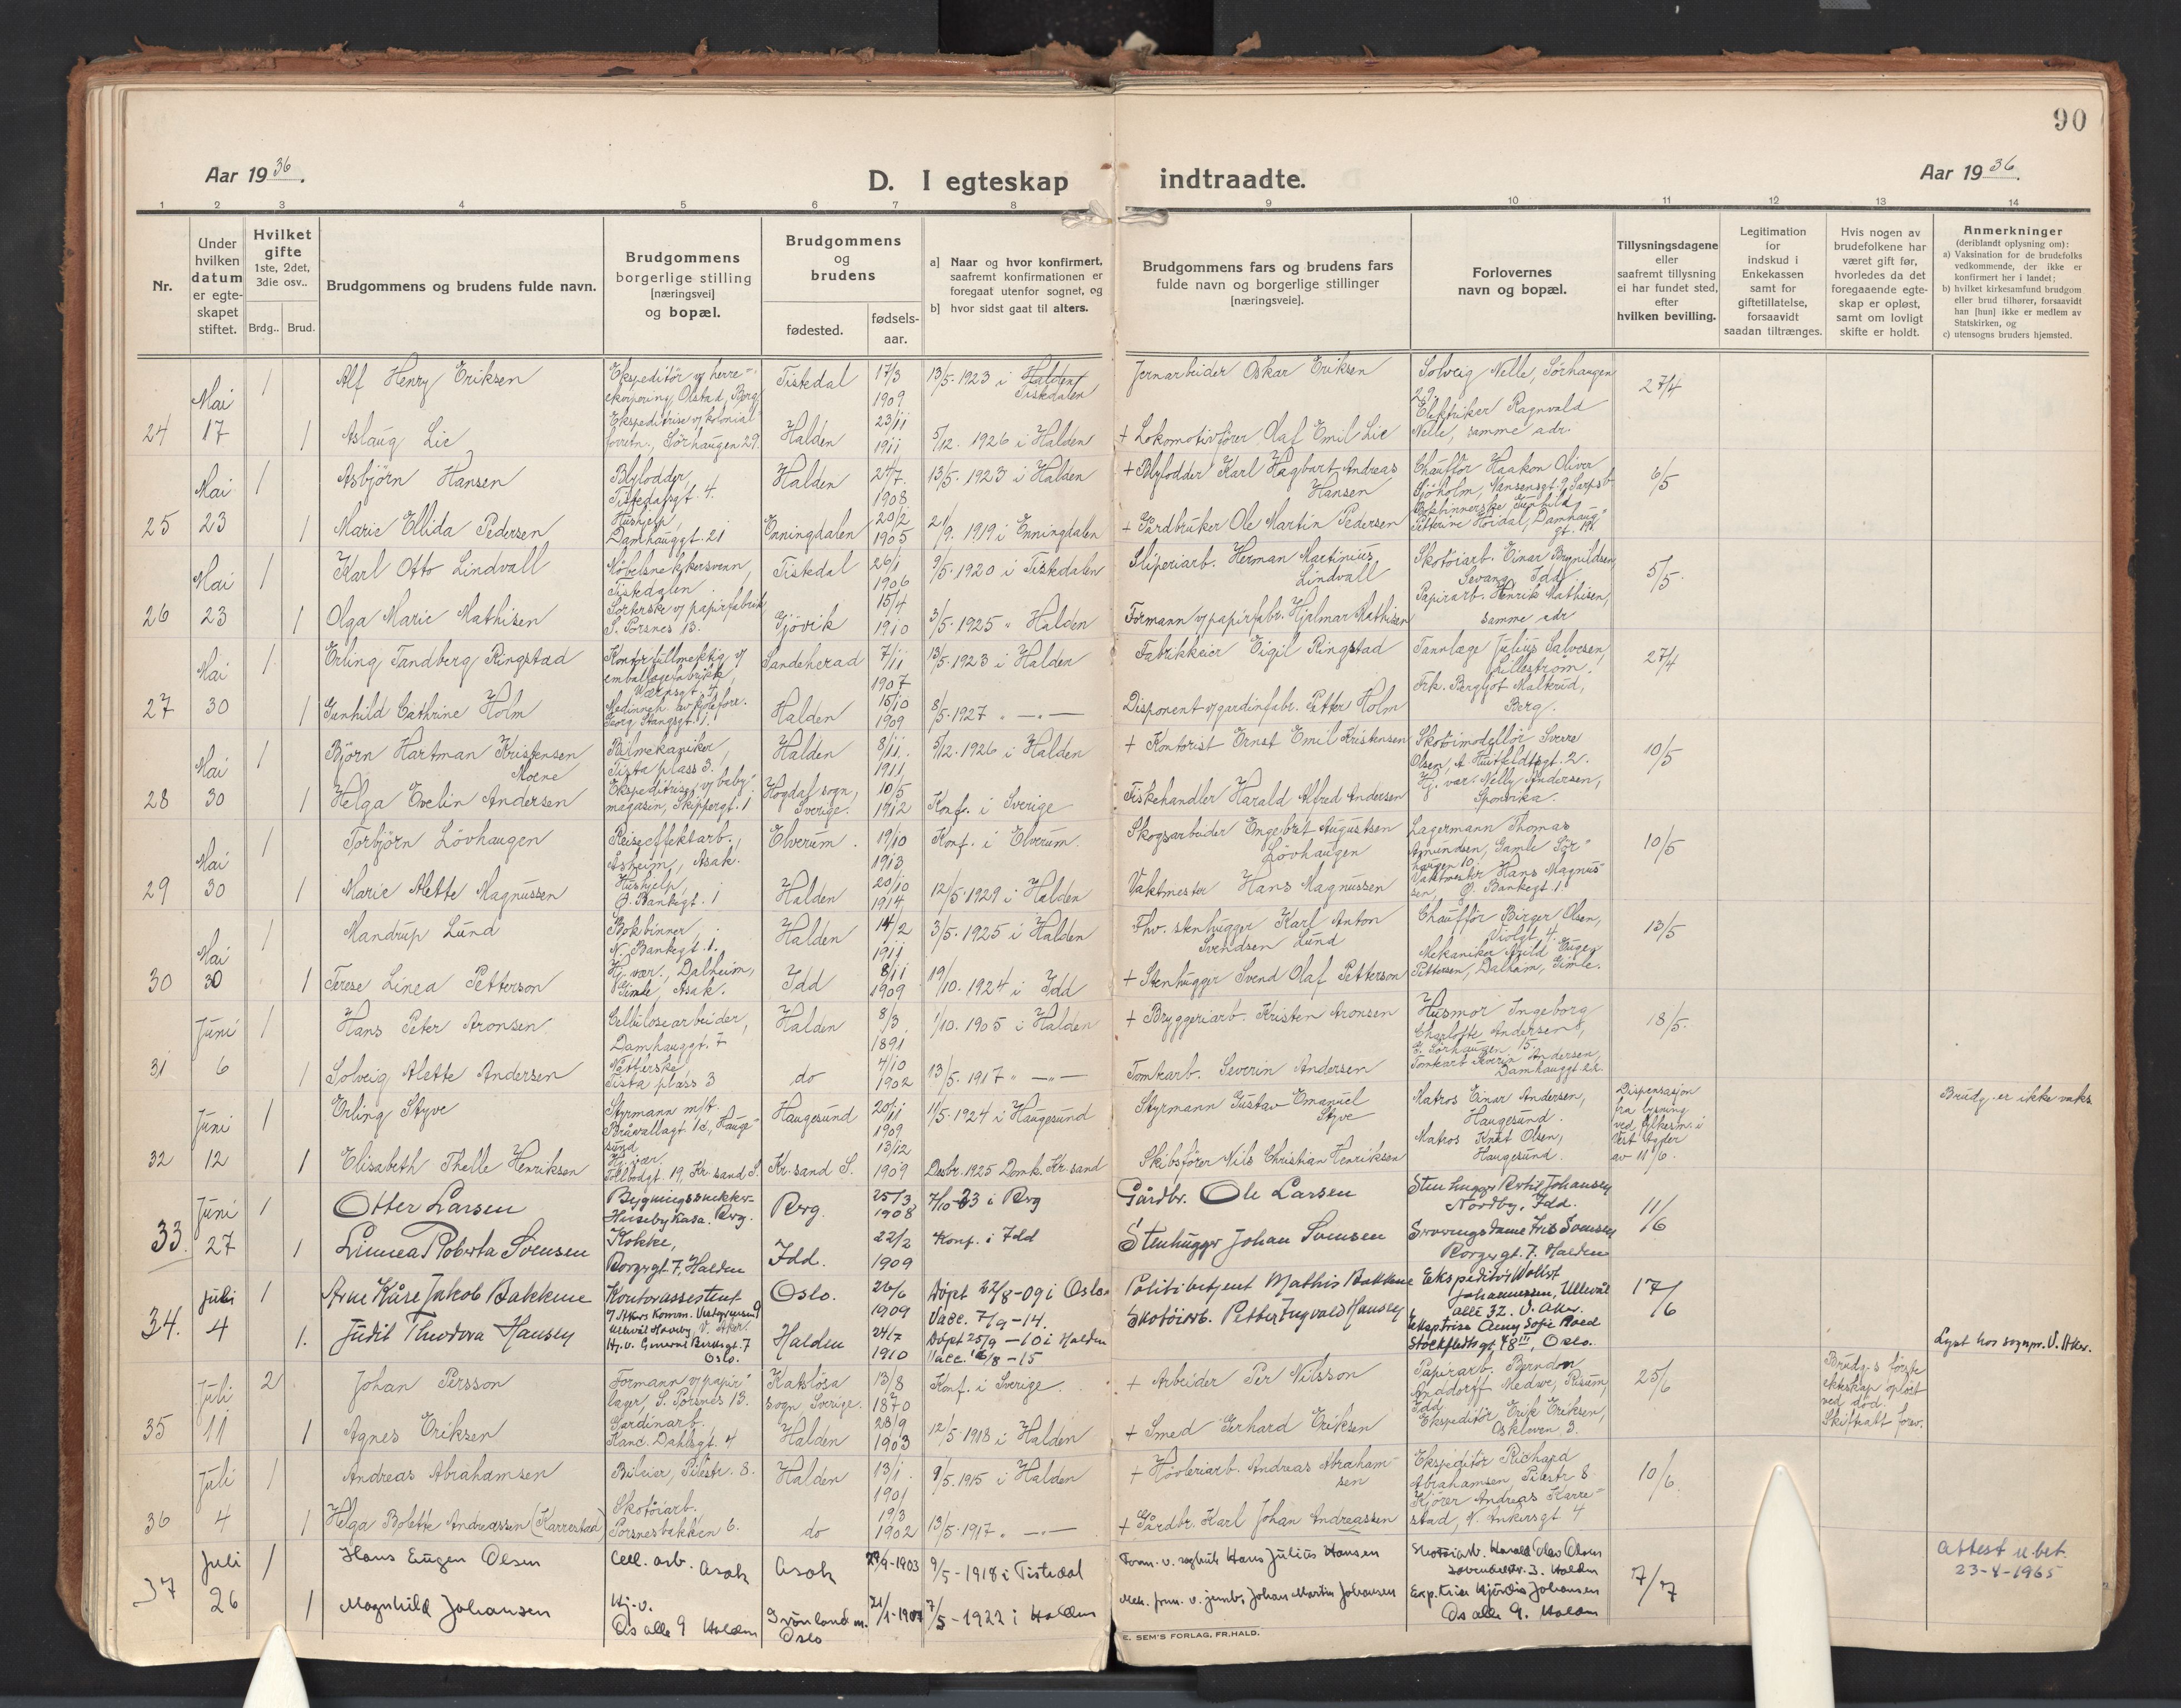 90
Aar 1936.
D. I egteskap indtraadte.
Aar 1936.
1 2 3 4 5 6 7 8 9 10 11 12 13 14
Nr.
Under hvilken datum er egteskapet stiftet.
Hvilket gifte 1ste, 2det, 3die osv..
Brdg.. Brud.
Brudgommens og brudens fulde navn.
Brudgommens borgerlige stilling [næringsvei] og bopæl.
Brudgommens og brudens
fødested.
fødsels-aar.
a] Naar og hvor konfirmert, saafremt konfirmationen er foregaat utenfor sognet, og
b] hvor sidst gaat til alters.
Brudgommens fars og brudens fars fulde navn og borgerlige stillinger [næringsveie].
Forlovernes navn og bopæl.
Tillysningsdagene eller saafremt tillysning ei har fundet sted, efter hvilken bevilling.
Legitimation for indskud i Enkekassen samt for giftetillatelse, forsaavidt saadan tiltrænges.
Hvis nogen av brudefolkene har været gift før, hvorledes da det foregaaende egteskap er opløst, samt om lovligt skifte er holdt.
Anmerkninger (deriblandt oplysning om):
a) Vaksination for de brudefolks vedkommende, der ikke er konfirmert her i landet;
b) hvilket kirkesamfund brudgom eller brud tilhører, forsaavidt han [hun] ikke er medlem av Statskirken, og
c) utensogns bruders hjemsted.
24 Mai 17
1 Alf Henry Eriksen Ekspeditör v/ herreekvipering, Olstad, Berg Tistedal 17/3 1909 13/5.1923 i Halden Tistedalen Jernarbeider Oskar Eriksen Solveig Nelle, Sörhaugen 29 27/4
1 Aslaug Lie Ekspeditrise v/ kolonialforretn., Sörhaugen 29. Halden 23/11 1911 5/12.1926 i Halden + Lokomotivförer Olaf Emil Lie Elektriker Ragnvald Nelle, samme adr.
25 Mai 23
1 Asbjörn Hansen Blylodder Tistedalsgt. 4. Halden 24/7. 1908 13/5.1923 i Halden + Blylodder Karl Hagbart Andreas Hansen Chaufför Haakon Oliver Sjöholm, Nansensgt. 9, Sarpsb. 6/5
1 Marie Ellida Pedersen Hushjelp, Damhauggt. 21 Enningdalen 20/2 1905 21/9.1919 i Enningdalen + Gardbruker Ole Martin Pedersen Bokbinnerske Gunhild Petterine Höidal, Damhauggt. 19
26 Mai 23
1 Karl Otto Lindvall Möbelsnekkersvenn, Tistedalen Tistedal 26/1 1906 9/5.1920 i Tistedalen Sliperiarb. Herman Martinius Lindvall Skotöiarb. Einar Brynildsen, Idd 5/5.
1 Olga Marie Mathisen Sorterske v/ papirfabrik S. Porsnes 13. Gjövik 15/4 1910 3/5.1925 " Halden Formann v/ papirfabr. Hjalmar Mathisen Papirarb. Henrik Mathisen, samme adr
27 Mai 30
1 Erling Tandberg Ringstad Kontorfullmektig v/ emballagefabrikk, Værnsgt. 4, Sandeherad 7/11 1907 13/5.1923 i Halden Fabrikkeier Eigil Ringstad Tannlæge Julius Salvesen, Lilleström. 27/4
1 Gunhild Cathrine Holm Medinneh. av kjolefore. Georg Stangsgt. 1. Halden 15/10 1909 8/5.1927 " —"— Disponent v/ gardinfabr. Petter Holm Frk. Bergljot Malterud, Berg.
28 Mai 30
1 Björn Hartman Kristensen Moene Bilmekaniker, Tista plass 3. Halden 8/11. 1911 5/12.1926 i Halden + Kontorist Ernst Emil Kristensen Skotöimodellör Sverre Olsen, A. Huitfeldtsgt. 2. 10/5
1 Helga Evelin Andersen Ekspeditrise v/ babymagasin, Skippergt. 1 Högdal sogn, Sverige. 10/5 1912 Konf. i Sverige Fiskehandler Harald Alfred Andersen Hj. vær. Nelly Andersen, Sponvika.
29 Mai 30
1 Torbjörn Lövhaugen Reiseeffektarb., Åsheim, Asak. Elverum. 19/10 1913 Konf. i Elverum. Skogsarbeider Engebret Augustsen Lövhaugen Lagermann Thomas Amundsen, Gamle Sörhaugen 10. 10/5
1 Marie Alette Magnussen Hushjelp, Ø. Bankegt. 1 Halden 20/10 1914 12/5.1929 i Halden Vaktmester Hans Magnussen Vaktmester Hans Magnussen, Ø. Bankegt. 1.
30 Mai 30
1 Mandrup Lund Bokbinner, N. Bankegt. 1. Halden 14/2 1911 3/5.1925 i Halden Fhv. stenhugger Karl Anton Svendsen Lund Chauffför Birger Olsen, Violgt. 4. 13/5
1 Terese Linea Petterson Hj. vær., Dalheim, Gimle, Asak. Idd 8/11 1909 19/10.1924 i Idd + Stenhugger Svend Olaf Petterson Mekaniker Arild Eugen Pettersen, Dalheim, Gimle.
31 Juni 6
1 Hans Peter Aronsen Cellulosearbeider, Damhauggt. 7 Halden 8/3 1891 1/10.1905 i Halden + Bryggeriarb. Kristen Aronsen Husmor Ingeborg Charlotte Andersen, G. Sörhaugen 15. 18/5.
1 Solveig Alette Andersen Tista plass 3 do 4/10 1902 13/5.1917 " —"— Tomtearb. Severin Andersen Tomtearb. Severin Andersen, Damhauggt.
32 Juni 12
1 Erling Styve Styrmann m/t. Bråvallagt. 1d, Haugesund Haugesund 20/11 1909 11/5.1924 i Haugesund Styrmann Gustav Emanuel Styve Matros Einar Andersen, Haugesund. Dispensasjon fra lysning ved fylkesm. i Vest Agder av 11/6. Brudg. er ikke vaks
1 Elisabeth Thelle Henriksen Hj. vær. Tollbodgt. 19, Kr.sand S. Kr.sand S. 13/12 1909 Desbr. 1925 Domk. Kr.sand Skibsförer Nils Christian Henriksen Matros Knut Olsen, Haugesund.
33. Juni 27
1 Otter Larsen Bygningssnekker. Husebykasa. Berg. Berg. 25/3 1908 7/10-23 i Berg Gårdbr. Ole Larsen Stenhugger Bertil Johansen Nordby, Idd. 11/6
1 Linnea Roberta Svensen Kokke, Borgergt. 7, Halden Idd. 22/2 1909 Konf. i Idd Stenhugger Johan Svensen Iris Svensen Borgergt. 7. Halden
34. Juli 4
1 Arne Kåre Jakob Bakkene Kontorassistent v/ Akers Komm. Ullevål Haveby, V. Aker. Oslo. 20/6 1909 Döpt 22/8-09 i Oslo Vacc. 7/9-14. Politibetjent Mathis Bakkene Ekspeditör Johannessen, Ullevål alle 32. V. Aker. 17/6
1. Judit Theodora Hansen Hj.v. General Birchsgt. 7 Oslo. Halden 24/7 1910 Döpt 25/9-10 i Halden Vacc. 16/8-15 Skotöiarb. Petter Ingvald Hansen Ekspetrise Anny Sofie Roed Stockflethsgt. 48 III, Oslo. Lyst hos sognepr. V. Aker.
35 Juli 11
2 Johan Persson Formann v/ papirlager, S. Porsnes 13. Katslösa sogn, Sverige. 13/8 1870 Konf. i Sverige. + Arbeider Per Nilsson Papirarb. Berndon Anddorff Medwe, Risum, Idd 25/6 Brudg-s förste ekteskap oplöst ved död. Skifteatt. forev.
1 Agnes Eriksen Gardinarb. Kanc. Dahlsgt. 4 Halden 28/9 1903 12/5.1918 i Halden + Smed Gerhard Eriksen Ekspeditör Erik Eriksen, Oskleven 3.
36 Juli 4
1 Andreas Abrahamsen Bileier, Pilestr. 8. Halden 13/1. 1901 9/5.1915 i Halden + Hövleriarb. Andreas Abrahamsen Ekspeditör Richard Abrahamsen Pilestr 8. 10/6
1 Helga Bolette Andreassen (Karrestad) Skotöiarb. Porsnesbakken 6. do 19/3 1902 13/5.1917 " —"— + Gårdbr. Karl Johan Andreassen Kjörer Andreas Karrestad, N. Ankersgt 4
37 Juli 26
1 Hans Eugen Olsen Cell. arb. Asak Asak 29/9-1903 9/5-1918 i Tistedal Form. v. sagbruk Hans Julius Hansen Skotöiarb. Harald Olav Olsen Halden 7/7 Attest u. bet. 23-4-1965
1 Magnhild Johansen Hj.v. Os alle 9 Halden Grönland m. Oslo 21/1-1907 7/5-1922 i Halden Mek. form. v. jernb. Johan Martin Johansen Exp.trise Hjördis Johansen Os alle 9. Halden
E. SEM'S FORLAG, FR.HALD.